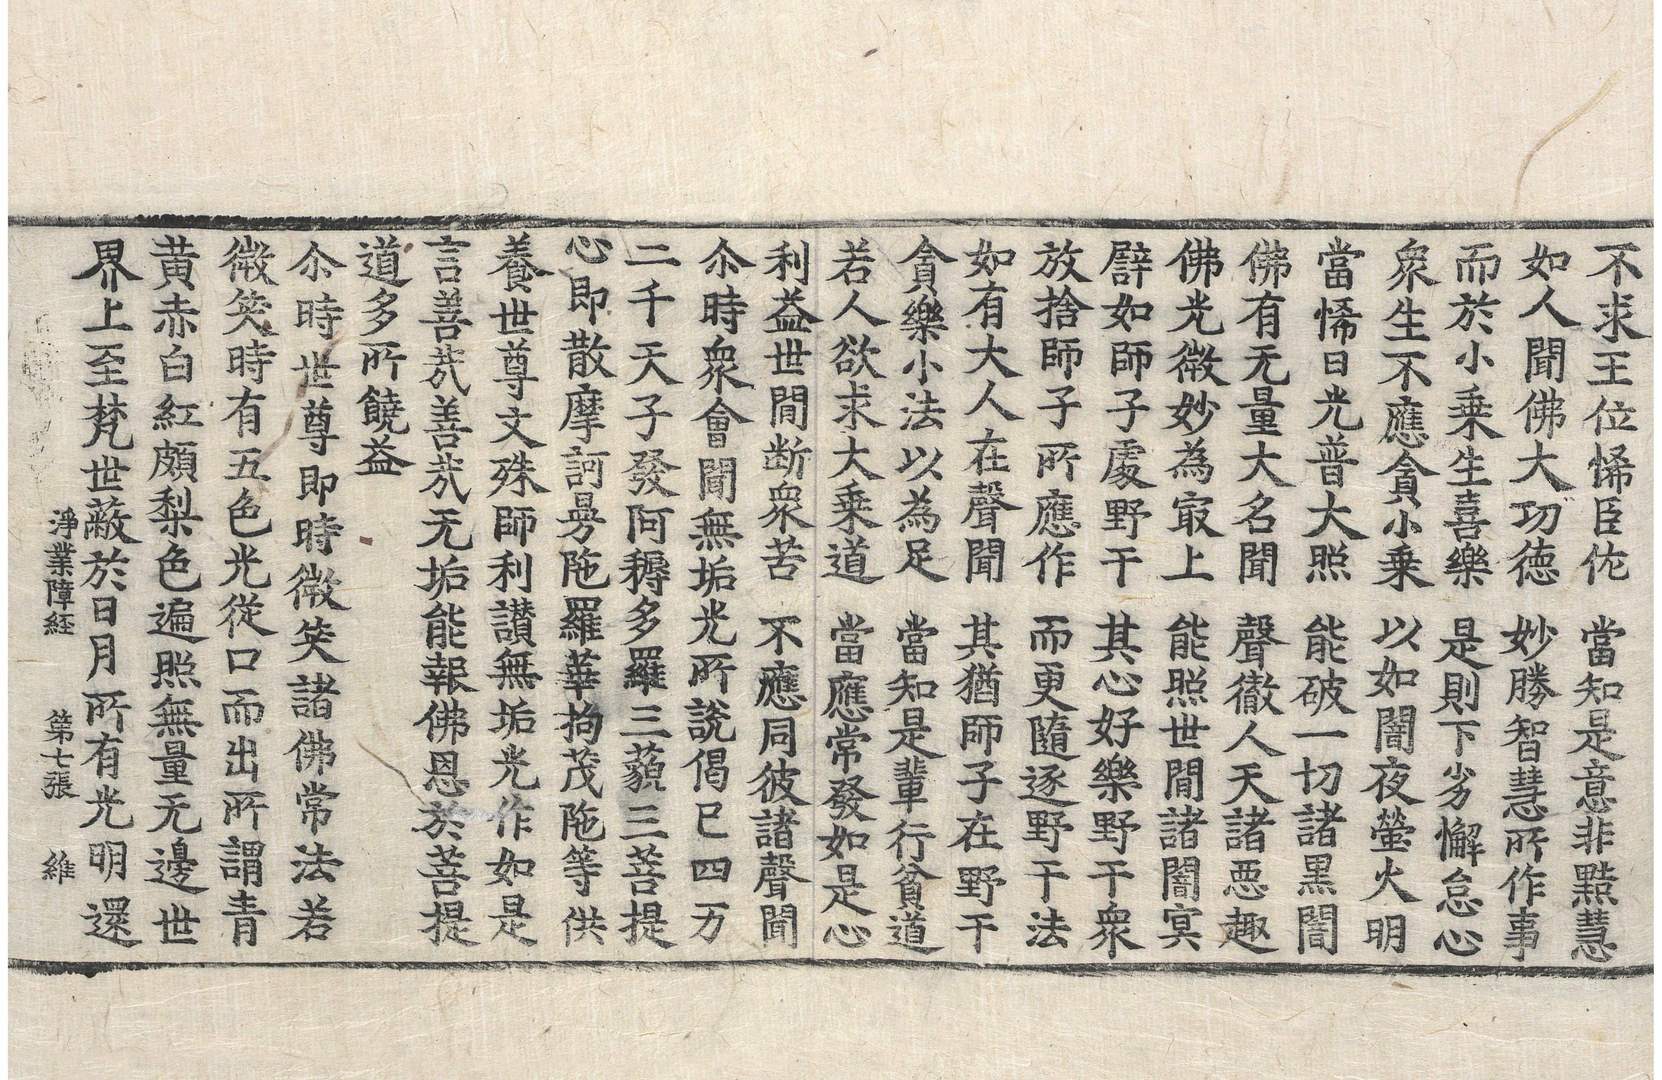 不求王位悕臣佐　當知是意非黠慧
如人聞佛大功德　妙勝智慧所作事
而於小乗生喜樂　是則下劣懈怠心
衆生不應貪小乗　以如闇夜螢火明
當悕日光普大照　能破一切諸黒闇
佛有无量大名聞　聲徹人天諸惡趣
佛光微妙為冣上　能照世閒諸闇冥
譬如師子處野干　其心好樂野干衆
放捨師子所應作　而更隨逐野干法
如有大人在聲聞　其猶師子在野干
貪樂小法以為足　當知是輩行貧道
若人欲求大乗道　當應常發如是心
利益世閒断衆苦　不應同彼諸聲聞
尒時衆會聞無垢光所說偈已四万
二千天子發阿耨多羅三藐三菩提
心即散摩訶曼陁羅華拘茂陁等供
養世尊文殊師利讃無垢光作如是
言善㢤善㢤无垢能報佛恩於菩提
道多所饒益
尒時世尊即時微笑諸佛常法若
微笑時有五色光從口而出所謂青
黄赤白紅頗梨色遍照無量无邊世
界上至梵世蔽於日月所有光明還
淨業障経　第七張　維